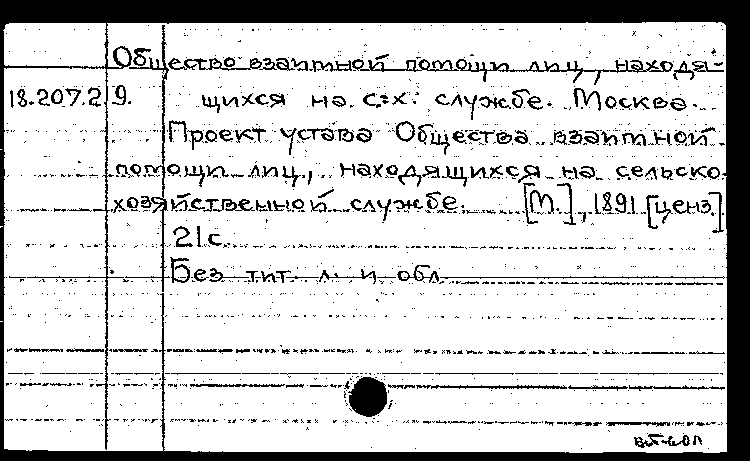 Общество взаимной помощи лиц, находя-
18.207.2 9. щихся на с=х. службе. Москва.
Проект устава Общества взаимной
помощи лиц, находящихся на сельско-
хозяйственной службе. [М.], 1891 [ценз.]
21с.
Без тит. л. и обл.